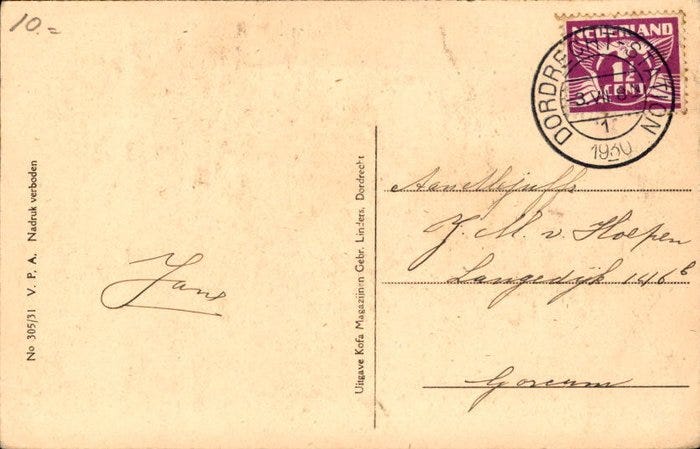 10.=
NEDERLAND
1½
CENT
DORDRECHT-STATION
3.VII.8
1
1930
No 305/31 V. P. A. Nadruk verboden
Uitgave Kofa Magazijnen Gebr. Linders, Dordrecht
Jans
Aan Mejuffr
J. M. v. Hoepen
Langedijk 146b
Gorcum